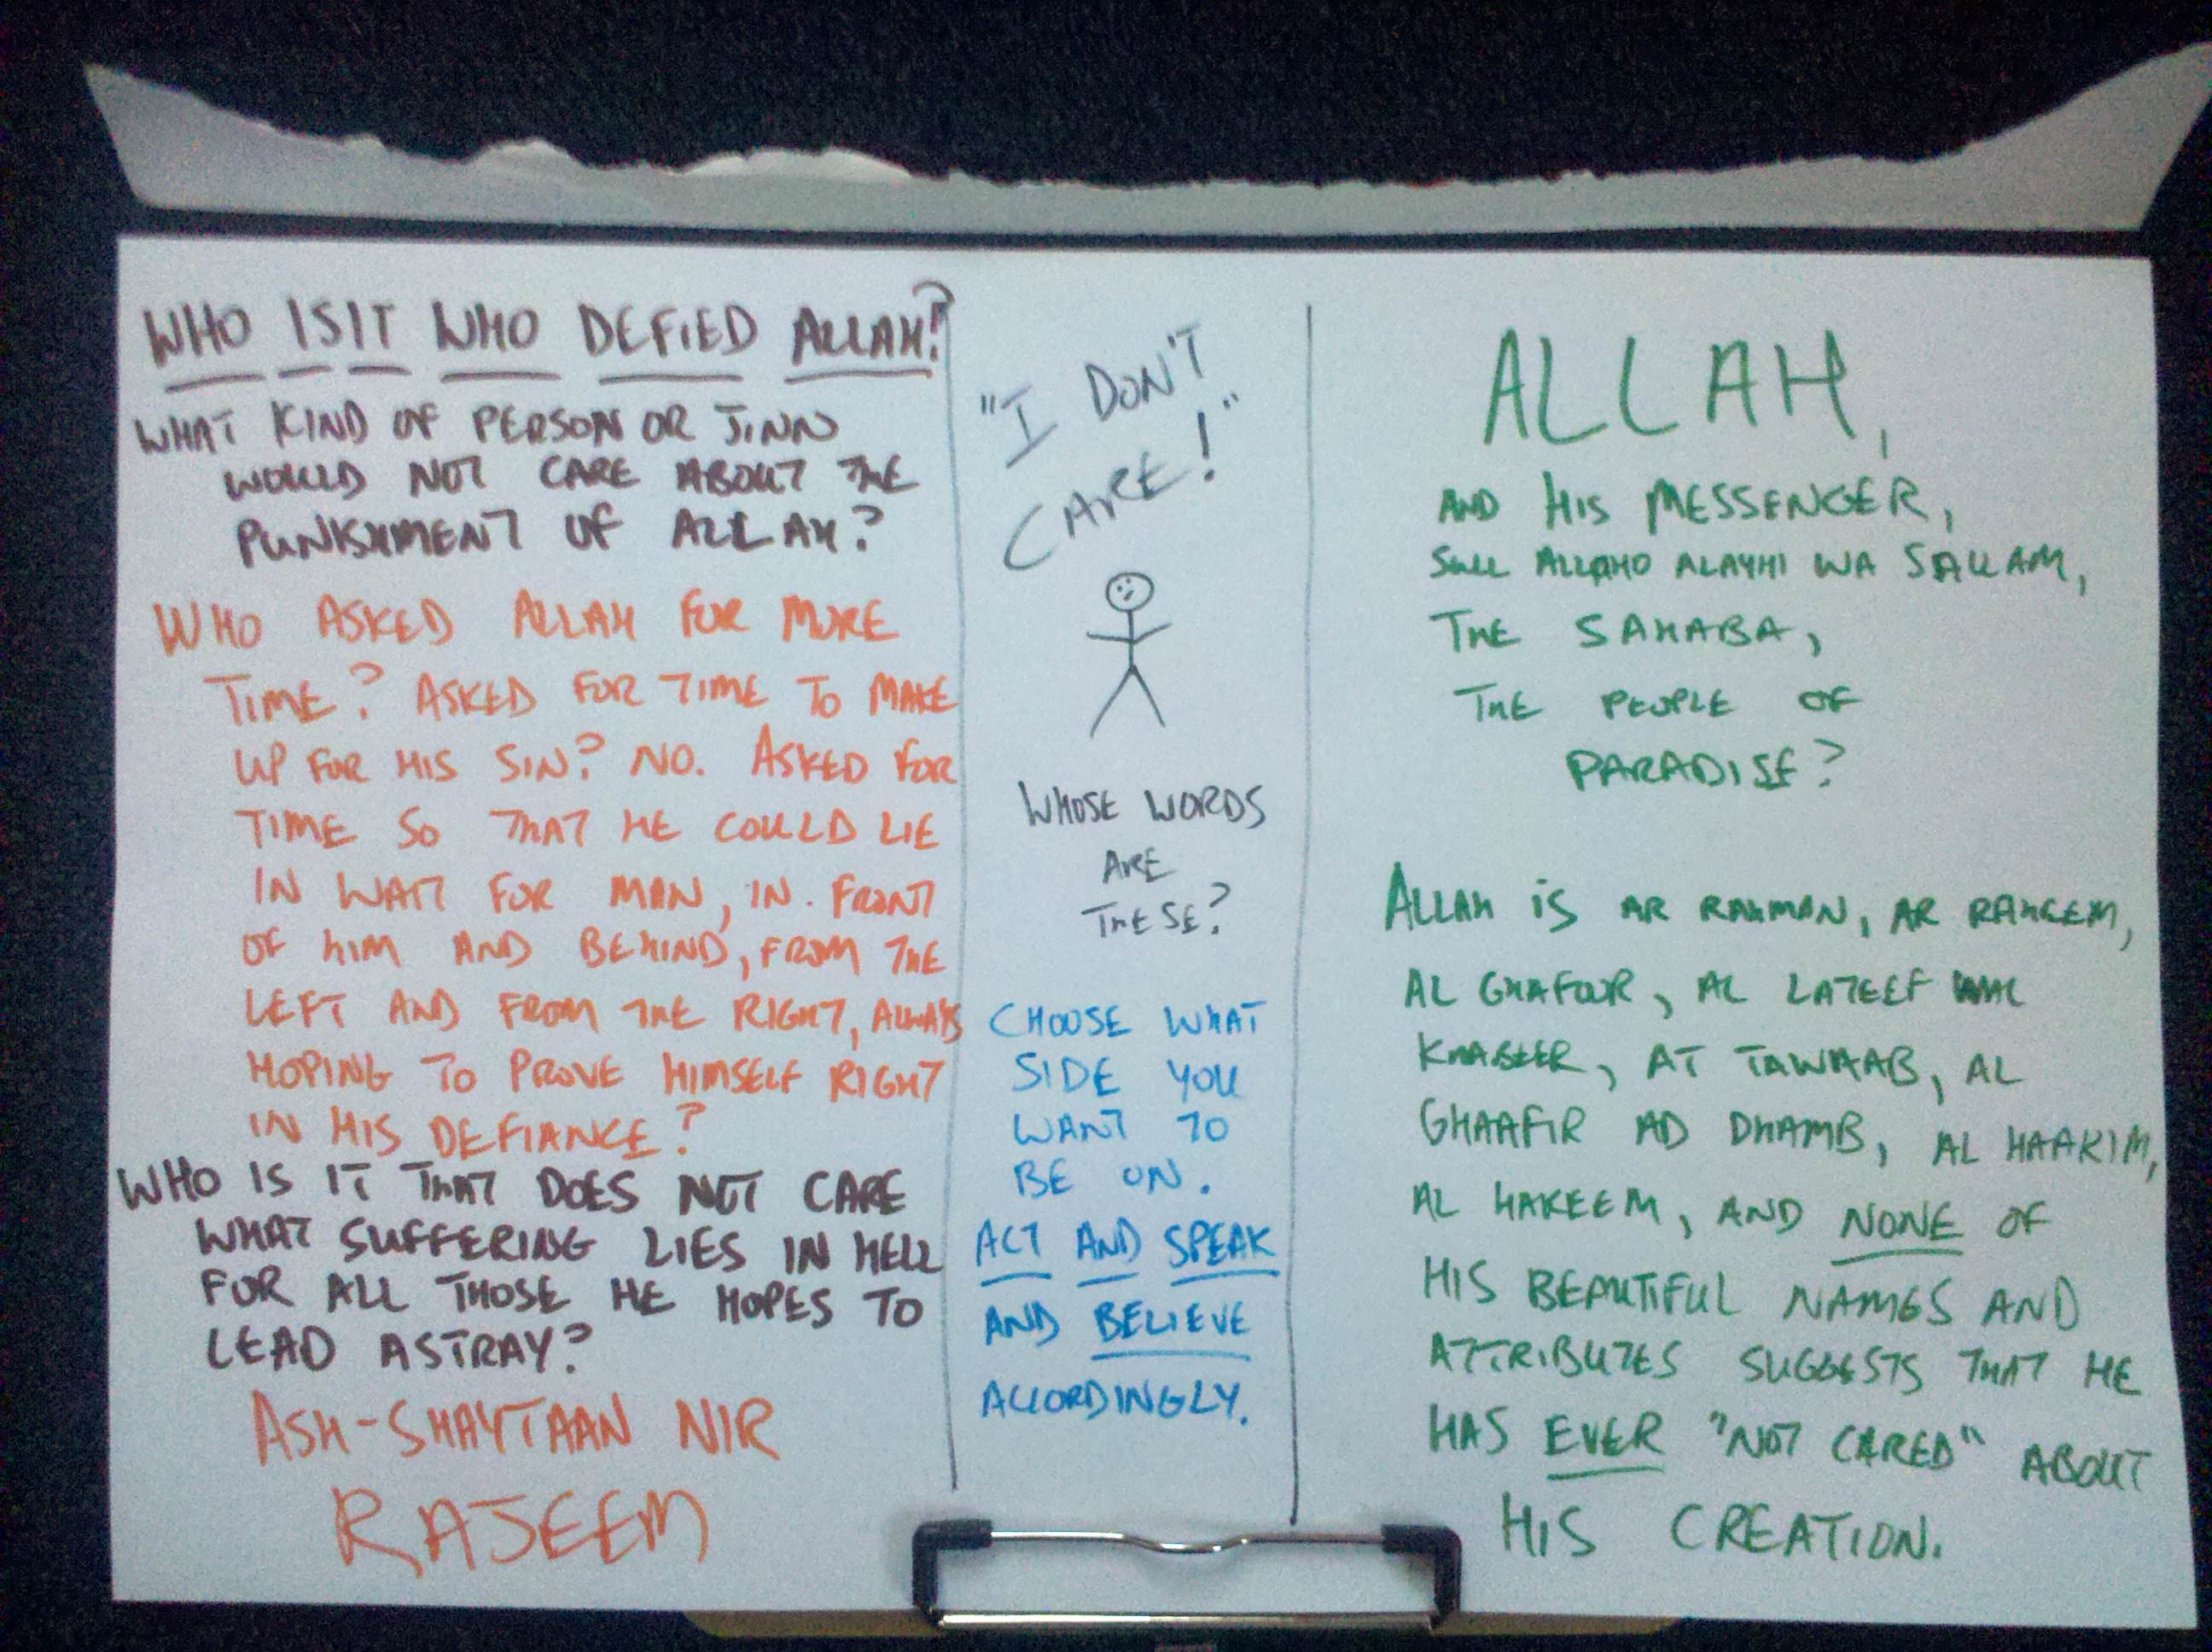 WHO IS IT WHO DEFIED ALLAH?
WHAT KIND OF PERSON OR JINN
WOULD NOT CARE ABOUT THE
PUNISHMENT OF ALLAH?
WHO ASKED ALLAH FOR MORE
TIME? ASKED FOR TIME TO MAKE
UP FOR HIS SIN? NO. ASKED FOR
TIME SO THAT HE COULD LIE
IN WAIT FOR MAN, IN FRONT
OF HIM AND BEHIND, FROM THE
LEFT AND FROM THE RIGHT, ALWAYS
HOPING TO PROVE HIMSELF RIGHT
IN HIS DEFIANCE?
WHO IS IT THAT DOES NOT CARE
WHAT SUFFERING LIES IN HELL
FOR ALL THOSE HE HOPES TO
LEAD ASTRAY?
ASH-SHAYTAAN NIR
RAJEEM
"I DON'T
CARE!"
WHOSE WORDS
ARE
THESE?
CHOOSE WHAT
SIDE YOU
WANT TO
BE ON.
ACT AND SPEAK
AND BELIEVE
ACCORDINGLY.
ALLAH,
AND HIS MESSENGER,
SALL ALLAHO ALAYHI WA SALLAM,
THE SAHABA,
THE PEOPLE OF
PARADISE?
ALLAH IS AR RAHMAN, AR RAHEEM,
AL GHAFOUR, AL LATEEF WAL
KHABEER, AT TAWHAAB, AL
GHAAFIR AD DHAMB, AL HAAKIM,
AL HAKEEM, AND NONE OF
HIS BEAUTIFUL NAMES AND
ATTRIBUTES SUGGESTS THAT HE
HAS EVER "NOT CARED" ABOUT
HIS CREATION.